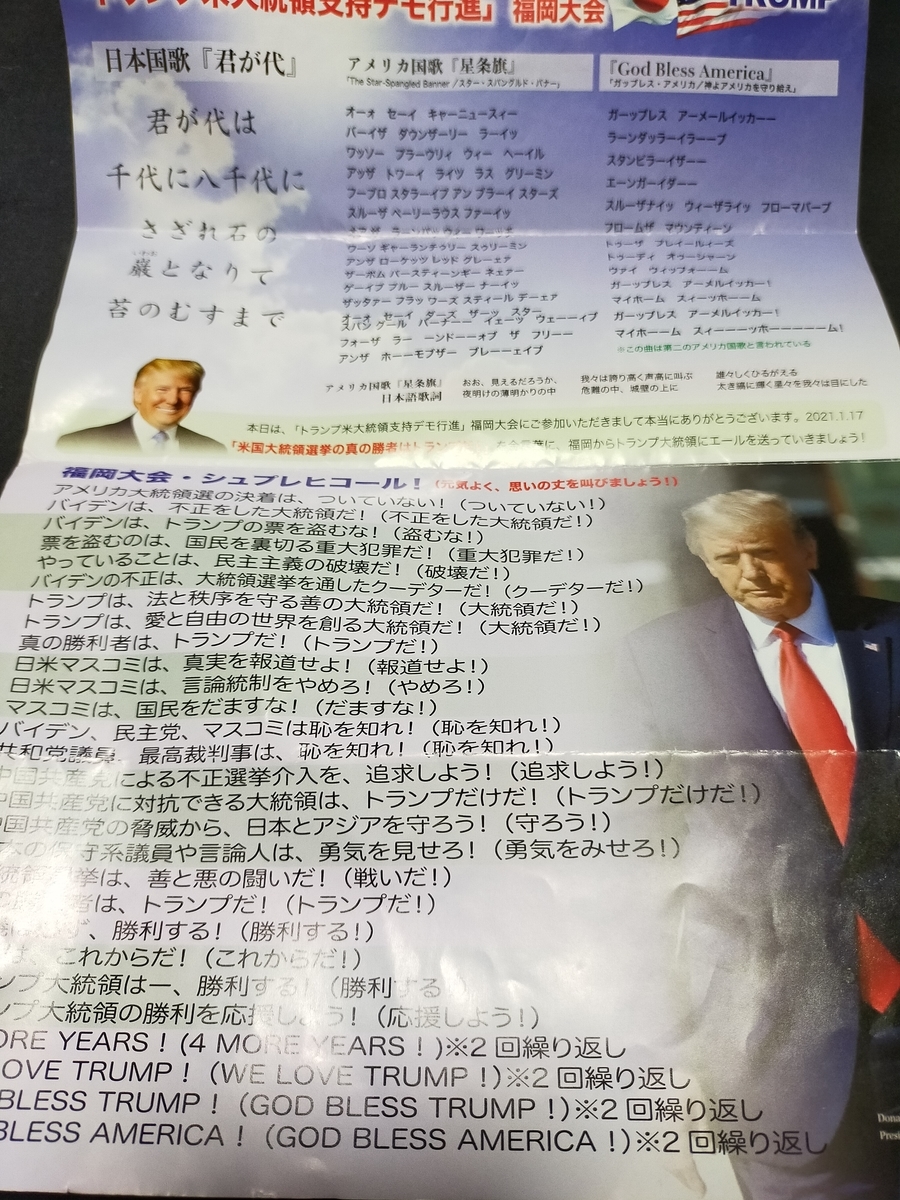 トランプ米大統領支持デモ行進」 福岡大会
TRUMP
日本国歌『君が代』
君が代は
千代に八千代に
さざれ石の
巌となりて
いわお
苔のむすまで
アメリカ国歌『星条旗』
「The Star-Spangled Banner /スター・スパングルド・バナー」
オーォ セーイ キャーニュースィー
バーイザ ダウンザーリー ラーイッ
ワッソー プラーウリィ ウィー ヘーイル
アッザ トワーイ ライツ ラス グリーミン
フーブロ スタラーイプ アン ブラーイ スターズ
スルーザ ペーリーラウス ファーイッ
ウーソ ギャーランチゥリー スゥリーミン
アンザ ローケッツ レッド グレーェァ
ザーボム バースティーンギー ネェァー
ゲーイブ プルー スルーザー ナーイッ
ザッタァー フラッ ワーズ スティール デーェァ
オーォ セーイ ダーズ ザーッ スター
スパングール バーナーー イェーッ ウェーーイブ
フォーザ ラー ーンドーーオブ ザ フリーー
アンザ ホーーモブザー ブレーーェイブ
『God Bless America』
「ガップレス・アメリカ/神よアメリカを守り給え」
ガーップレス アーメールイッカーー
ラーンダッラーイラーーブ
スタンビラーイザーー
エーンガーイダーー
スルーザナイッ ウィーザライッ フローマバーブ
フロームザ マウンティーン
トゥーザ プレイールイーズ
トゥーディ オゥーシャーン
ヴァイ ウィッフォーーム
ガーップレス アーメルイッカー!
マイホーム スィーッホーーム
ガーップレス アーメルイッカー!
マイホーーム スィーーーーッホーーーーーム!
※この曲は第二のアメリカ国歌と言われている
アメリカ国歌『星条旗』
日本語歌詞
おお、見えるだろうか、
夜明けの薄明かりの中
我々は誇り高く声高に叫ぶ
危難の中、城壁の上に
雄々しくひるがえる
太き縞に輝く星々を我々は目にした
本日は、「トランプ米大統領支持デモ行進」福岡大会にご参加いただきまして本当にありがとうございます。2021.1.17
「米国大統領選挙の真の勝者はトランプ
に、福岡からトランプ大統領にエールを送っていきましょう!
福岡大会・シュプレヒコール! (元気よく、思いの丈を叫びましょう!)
アメリカ大統領選の決着は、ついていない! (ついていない!)
バイデンは、不正をした大統領だ! (不正をした大統領だ!)
バイデンは、トランプの票を盗むな! (盗むな!)
票を盗むのは、国民を裏切る重大犯罪だ! (重大犯罪だ!)
やっていることは、民主主義の破壊だ! (破壊だ!)
バイデンの不正は、大統領選挙を通したクーデターだ! (クーデターだ!)
トランプは、法と秩序を守る善の大統領だ! (大統領だ!)
トランプは、愛と自由の世界を創る大統領だ! (大統領だ!)
真の勝利者は、トランプだ! (トランプだ!)
日米マスコミは、真実を報道せよ! (報道せよ!)
日米マスコミは、言論統制をやめろ! (やめろ!)
マスコミは、国民をだますな! (だますな!)
バイデン、民主党、マスコミは恥を知れ! (恥を知れ!)
共和党議員、最高裁判事は、恥を知れ! (恥を知れ!)
中国共産党による不正選挙介入を、追求しよう! (追求しよう!)
中国共産党に対抗できる大統領は、トランプだけだ! (トランプだけだ!)
中国共産党の脅威から、日本とアジアを守ろう! (守ろう!)
の保守系議員や言論人は、勇気を見せろ! (勇気をみせろ!)
統領選挙は、善と悪の闘いだ! (戦いだ!)
は、トランプだ! (トランプだ!)
ず、勝利する! (勝利する!)
は、これからだ! (これからだ!)
ンプ大統領は一、勝利する! (勝利する
ンプ大統領の勝利を応援しよう! (応援しよう!)
ORE YEARS ! (4 MORE YEARS ! )※2 回繰り返し
OVE TRUMP ! (WE LOVE TRUMP !)※2 回繰り返し
BLESS TRUMP ! (GOD BLESS TRUMP !)※2 回繰り返し
BLESS AMERICA ! (GOD BLESS AMERICA !)※2 回繰り返し
Dona
Pres